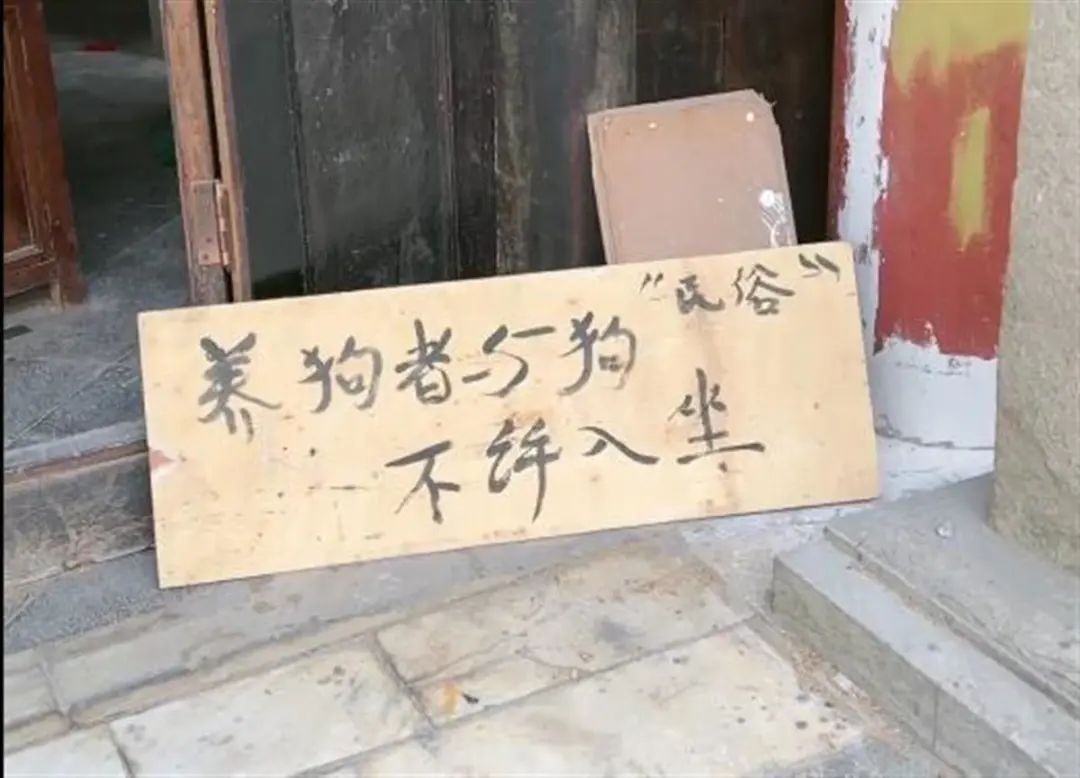 养狗者与狗 "民俗"
不许入坐